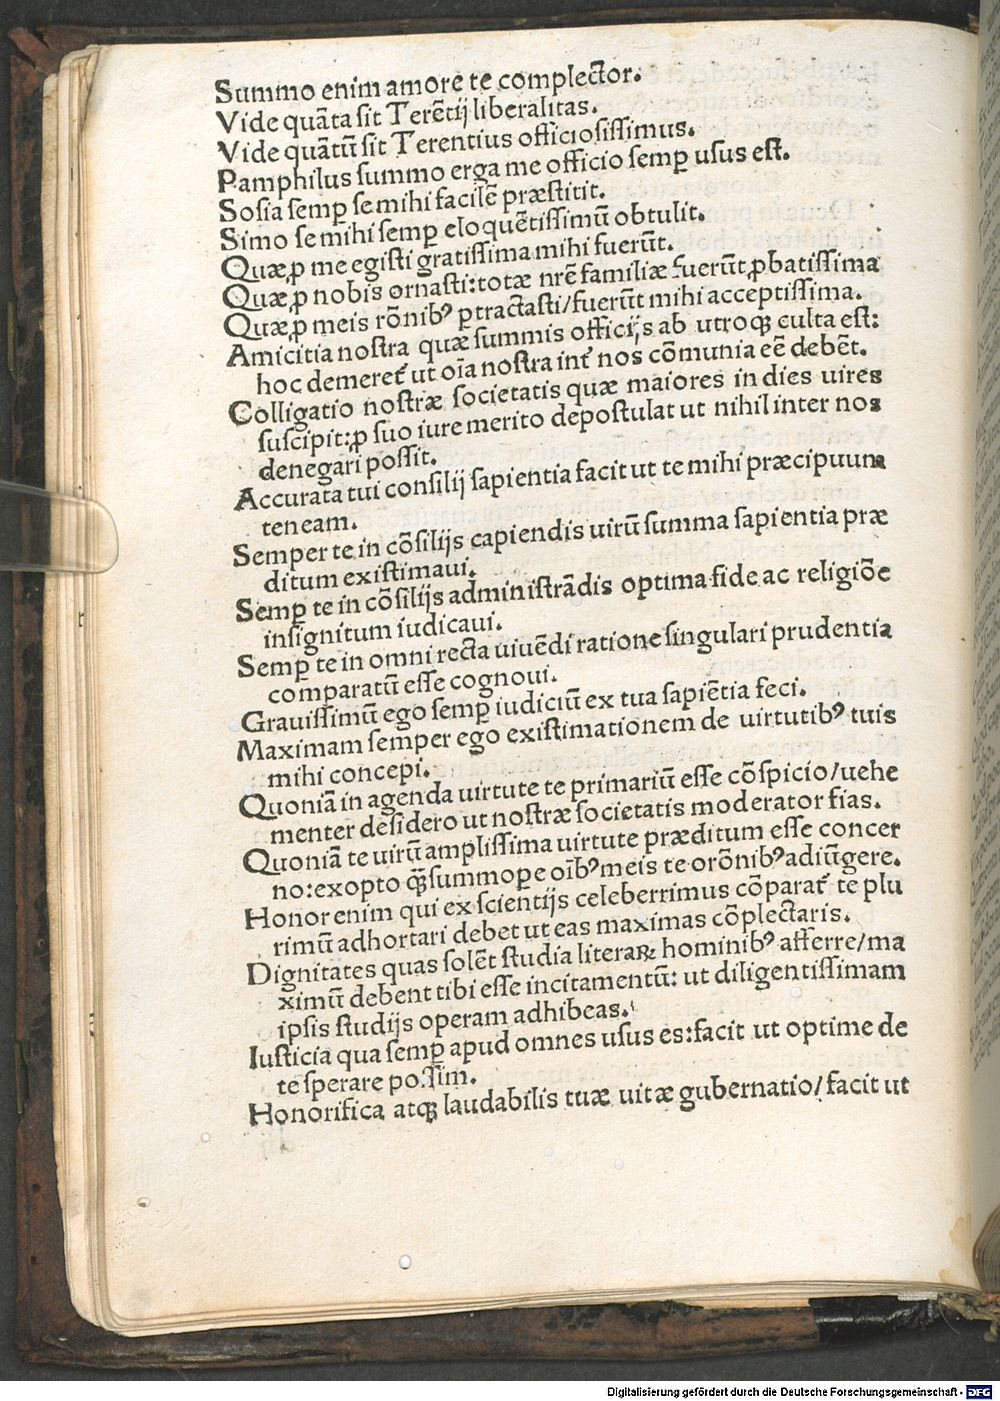 Summo enim amore te complector.
Vide quãta sit Terẽtij liberalitas.
Vide quãtũ sit Terentius officiosissimus.
Pamphilus summo erga me officio semꝑ usus est.
Sosia semꝑ se mihi facilẽ præstitit.
Simo se mihi semꝑ eloquẽtissimũ obtulit.
Quæ ꝓ me egisti gratissima mihi fuerũt.
Quæ ꝓ nobis ornasti: totæ nr̃e familiæ fuerũt ꝓbatissima
Quæ ꝓ meis rõnibꝰ ꝑtractasti/fuerũt mihi acceptissima.
Amicitia nostra quæ summis officijs ab utroqꝫ culta est:
hoc demeret᷑ ut oĩa nostra int᷑ nos cõmunia eẽ debẽt.
Colligatio nostræ societatis quæ maiores in dies uires
suscipit: ꝓ suo iure merito depostulat ut nihil inter nos
denegari possit.
Accurata tui consilij sapientia facit ut te mihi præcipuum
teneam.
Semper te in cõsilijs capiendis uirũ summa sapientia præ
ditum existimaui.
Semꝑ te in cõsilijs administrãdis optima fide ac religiõe
insignitum iudicaui.
Semꝑ te in omni recta uiuẽdi ratione singulari prudentia
comparatũ esse cognoui.
Grauissimũ ego semꝑ iudiciũ ex tua sapiẽtia feci.
Maximam semper ego existimationem de uirtutibꝰ tuis
mihi concepi.
Quoniã in agenda uirtute te primariũ esse cõspicio/uehe
menter desidero ut nostræ societatis moderator fias.
Quoniã te uirũ amplissima uirtute præditum esse concer
no: exopto qꝫ̃ summopere oĩbꝰ meis te orõnibꝰ adiũgere.
Honor enim qui ex scientijs celeberrimus cõparat᷑ te plu
rimũ adhortari debet ut eas maximas cõplectaris.
Dignitates quas solẽt studia literaꝝ hominibꝰ afferre/ma
ximũ debent tibi esse incitamentũ: ut diligentissimam
ipsis studijs operam adhibeas.
Iusticia qua semꝑ apud omnes usus es: facit ut optime de
te sperare possim.
Honorifica atqꝫ laudabilis tuæ uitæ gubernatio/facit ut
Digitalisierung gefördert durch die Deutsche Forschungsgemeinschaft - DFG